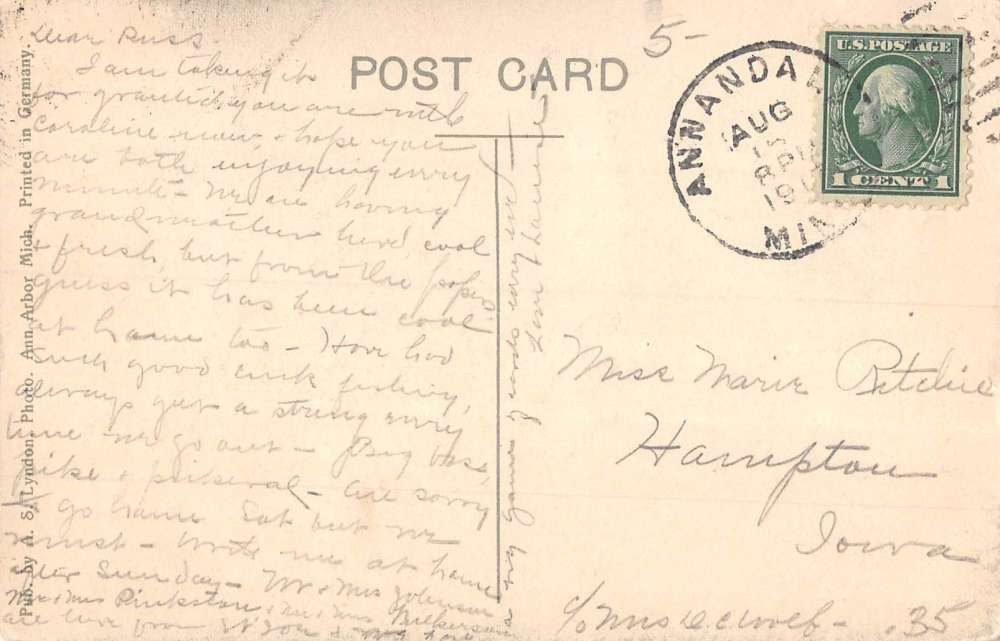 POST CARD
5-
U.S. POSTAGE
1 CENT 1
ANNANDA
AUG
8 PM
19
MIN
Pub. by A. S. Lyndon. Photo. Ann Arbor Mich. Printed in Germany.
Dear Russ.
I am taking it
for granted you are with
Caroline now, & hope you
are both enjoying every
minute - We are having
grand weather here, cool
& fresh, but from the papers
guess it has been cool
at home too - Have had
such good luck fishing,
always get a string every
time we go out - Big bass,
pike & pickeral - are sorry
to go home Sat but we
must - Write me at home
after Sunday - Mr & Mrs Johnson
Mr & Mrs Pinkston & Mr & Mrs
are here from St Joe &
we have scores of games every eve
Miss Marie Ritchie
Hampton
Iowa
c/o Mrs DeWolf - .35